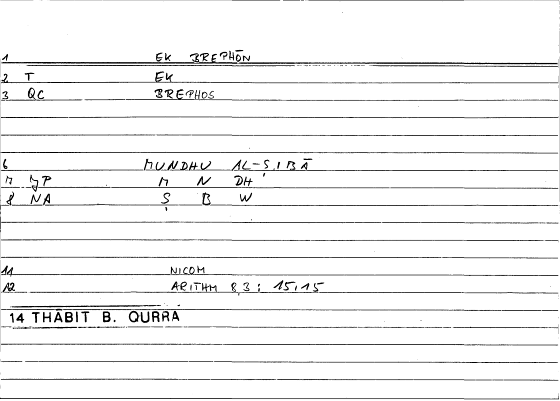 1 EK BREPHŌN
2 T EK
3 QC BREPHOS
6 MUNDHU AL-ṢIBĀ
7 P M N DH
8 NA Ṣ B W
11 NICOM
12 ARITHM 8,3 : 15,15
14 THĀBIT B. QURRA